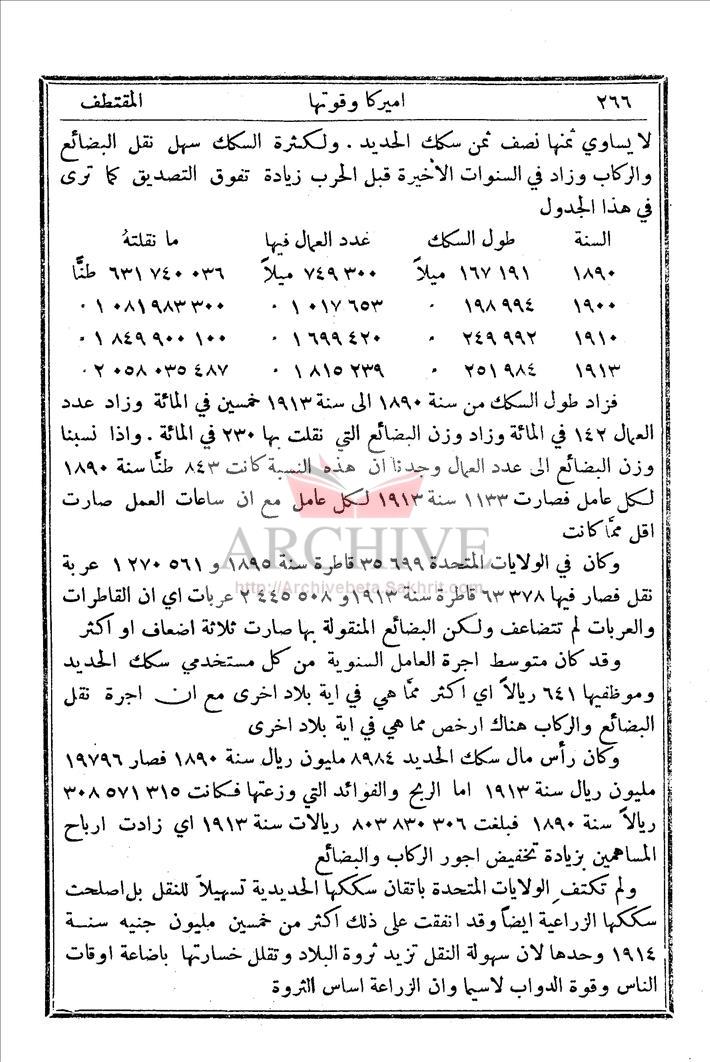 ٢٦٦ اميركا وقوتها المقتطف
لا يساوي ثمنها نصف ثمن سكك الحديد . ولكثرة السكك سهل نقل البضائع
والركاب وزاد في السنوات الأخيرة قبل الحرب زيادة تفوق التصديق كما ترى
في هذا الجدول
السنة طول السكك عدد العمال فيها ما نقلتهُ
١٨٩٠ ١٦٧ ١٩١ ميلاً ٧٤٩ ٣٠٠ ميلاً ٦٣١ ٧٤٠ ٠٣٦ طنًّا
١٩٠٠ ١٩٨ ٩٩٤ " ١ ٠١٧ ٦٥٣ " ١ ٠٨١ ٩٨٣ ٣٠٠ "
١٩١٠ ٢٤٩ ٩٩٢ " ١ ٦٩٩ ٤٢٠ " ١ ٨٤٩ ٩٠٠ ١٠٠ "
١٩١٣ ٢٥١ ٩٨٤ " ١ ٨١٥ ٢٣٩ " ٢ ٠٥٨ ٠٣٥ ٤٨٧ "
فزاد طول السكك من سنة ١٨٩٠ الى سنة ١٩١٣ خمسين في المائة وزاد عدد
العمال ١٤٢ في المائة وزاد وزن البضائع التي نقلت بها ٢٣٠ في المائة . واذا نسبنا
وزن البضائع الى عدد العمال وجدنا ان هذه النسبة كانت ٨٤٣ طنًّا سنة ١٨٩٠
لكل عامل فصارت ١١٣٣ سنة ١٩١٣ لكل عامل مع ان ساعات العمل صارت
اقل ممَّا كانت
ARCHIVE
http://Archivebeta.Sakhrit.com
وكان في الولايات المتحدة ٣٥ ٦٩٩ قاطرة سنة ١٨٩٥ و ١ ٢٧٠ ٥٦١ عربة
نقل فصار فيها ٦٣ ٣٧٨ قاطرة سنة ١٩١٣ و ٢ ٤٤٥ ٥٠٨ عربات اي ان القاطرات
والعربات لم تتضاعف ولكن البضائع المنقولة بها صارت ثلاثة اضعاف او اكثر
وقد كان متوسط اجرة العامل السنوية من كل مستخدمي سكك الحديد
وموظفيها ٦٤١ ريالاً اي اكثر ممَّا هي في اية بلاد اخرى مع ان اجرة نقل
البضائع والركاب هناك ارخص مما هي في اية بلاد اخرى
وكان رأس مال سكك الحديد ٨٩٨٤ مليون ريال سنة ١٨٩٠ فصار ١٩٧٩٦
مليون ريال سنة ١٩١٣ اما الربح والفوائد التي وزعتها فكانت ٣١٥ ٥٧١ ٣٠٨
ريالاً سنة ١٨٩٠ فبلغت ٣٠٦ ٨٣٠ ٨٠٣ ريالات سنة ١٩١٣ اي زادت ارباح
المساهمين بزيادة تخفيض اجور الركاب والبضائع
ولم تكتفِ الولايات المتحدة باتقان سككها الحديدية تسهيلاً للنقل بل اصلحت
سككها الزراعية ايضاً وقد انفقت على ذلك اكثر من خمسين مليون جنيه سنة
١٩١٤ وحدها لان سهولة النقل تزيد ثروة البلاد وتقلل خسارتها باضاعة اوقات
الناس وقوة الدواب لاسيما وان الزراعة اساس الثروة